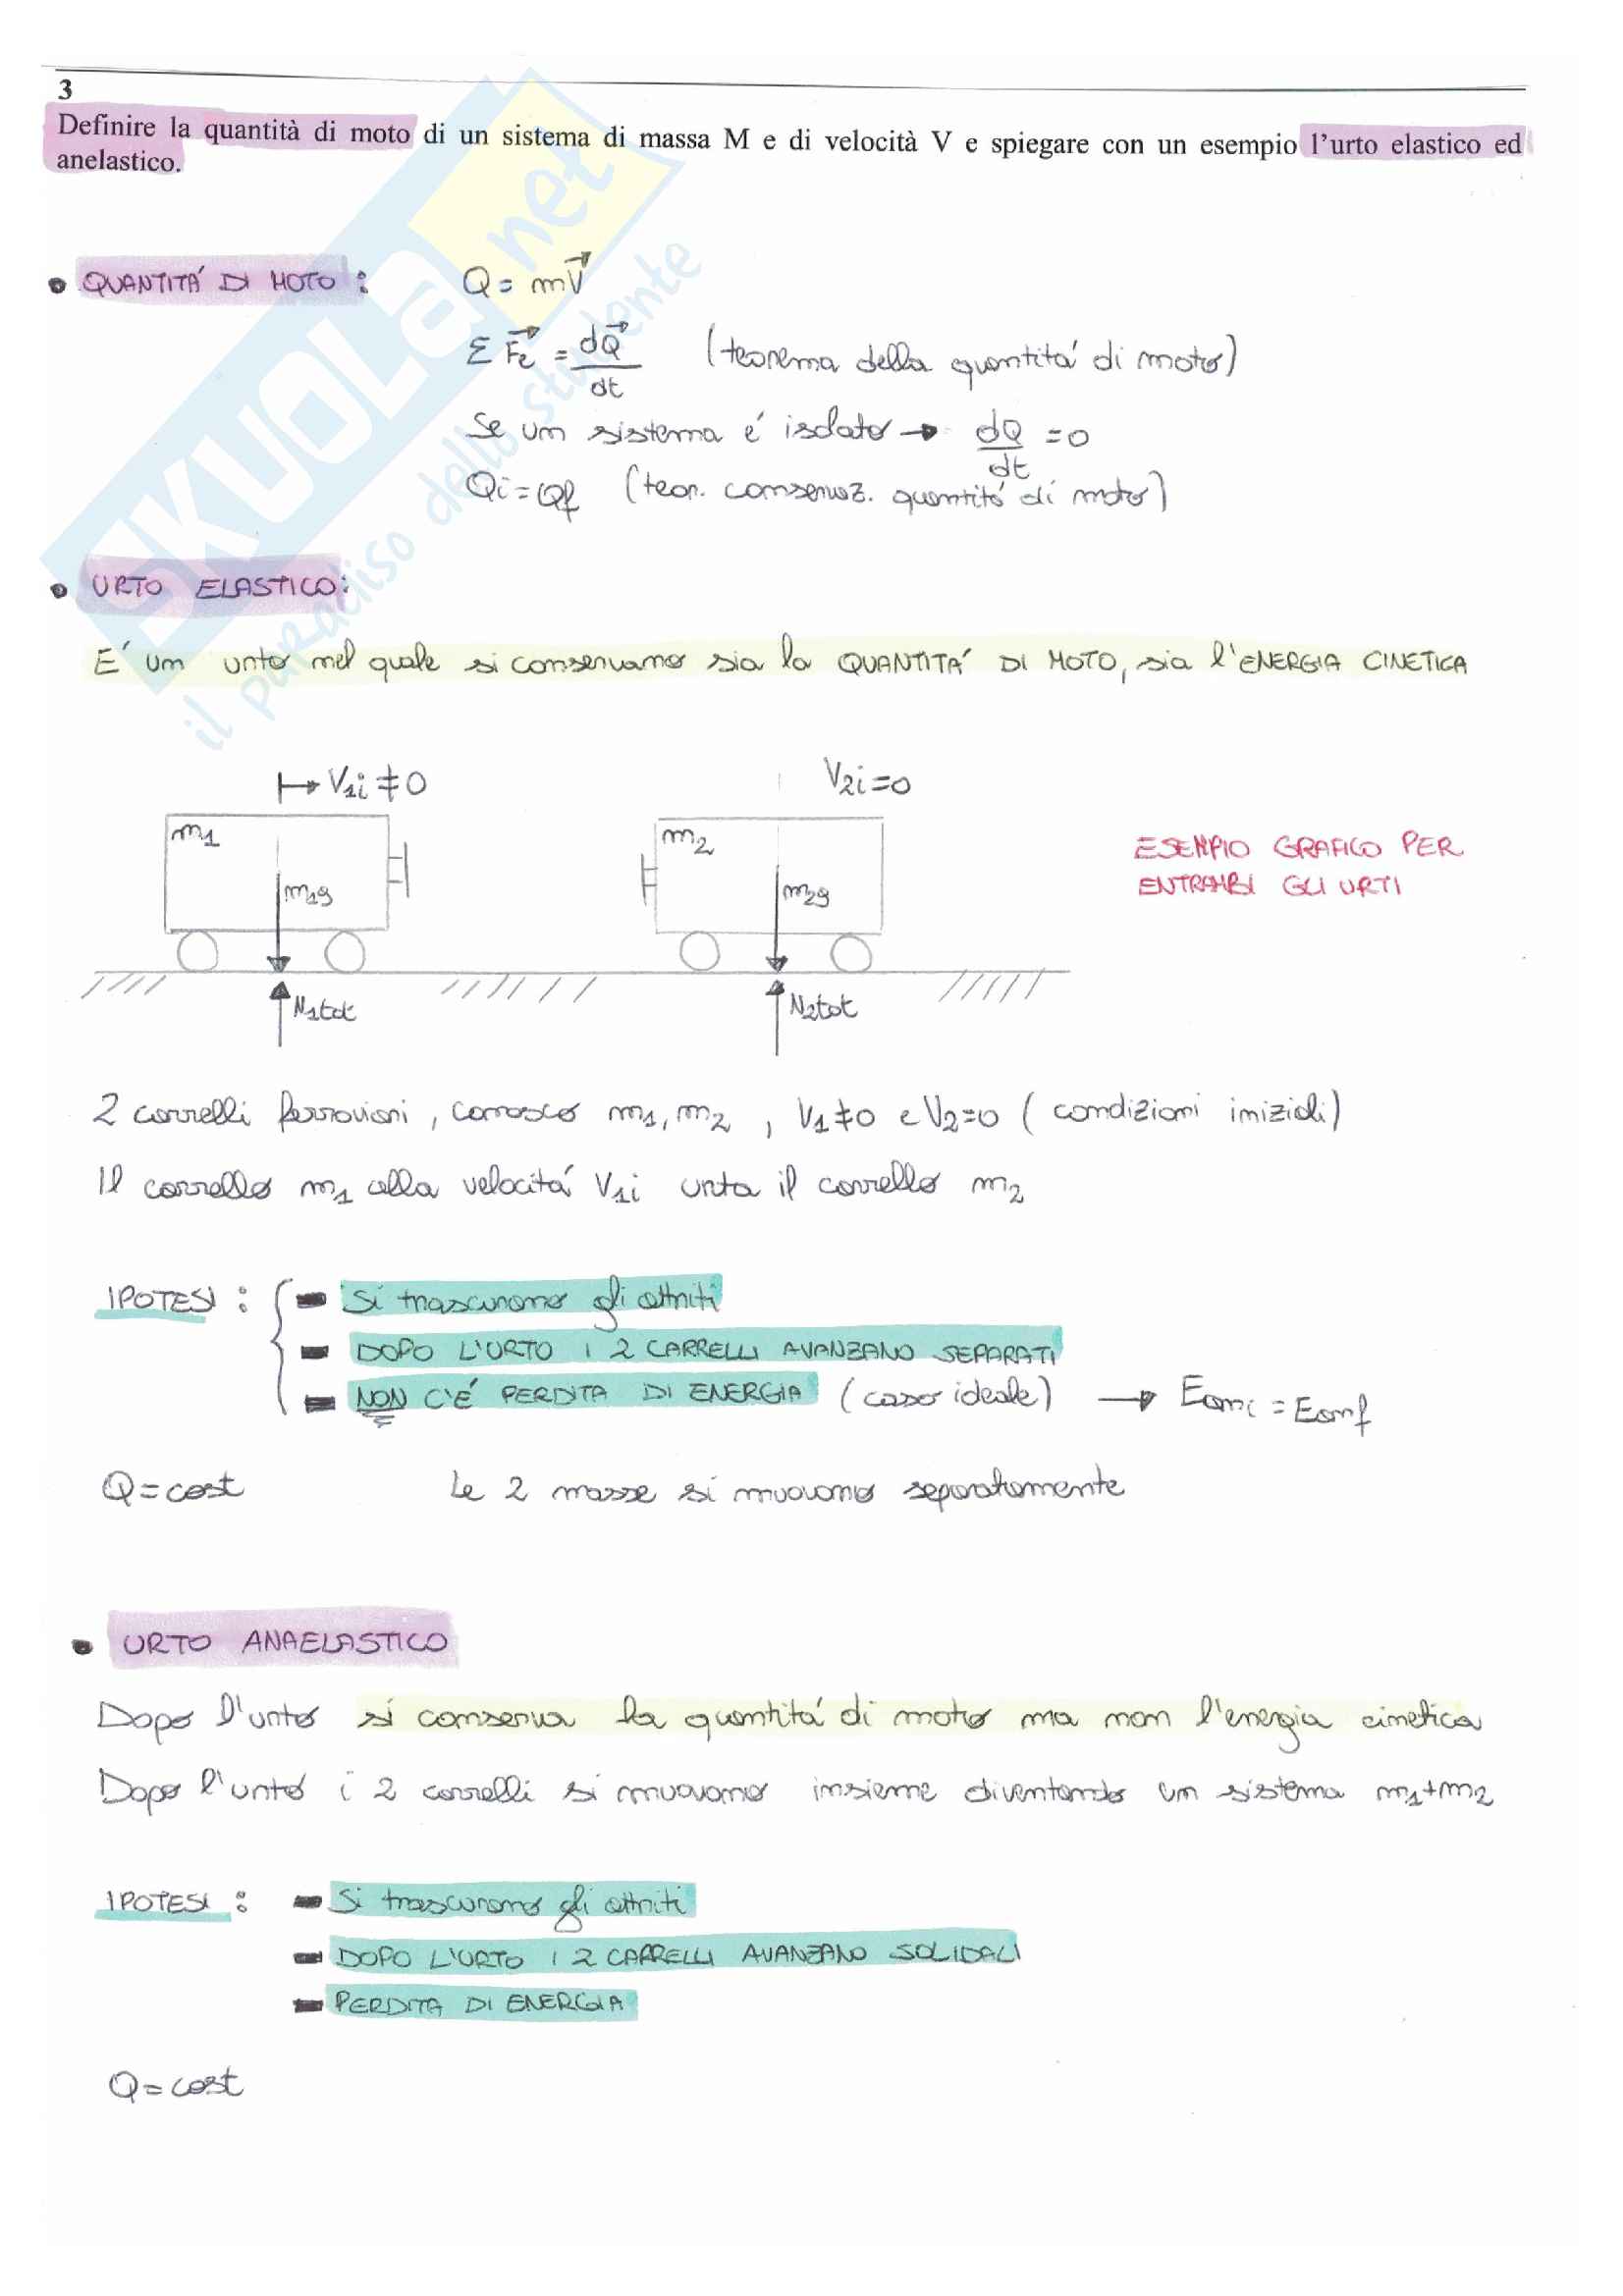 3
Definire la quantità di moto di un sistema di massa M e di velocità V e spiegare con un esempio l'urto elastico ed
anelastico.
SKUOLA.net
il paradiso dello studente
• QUANTITÁ DI MOTO : Q = mV⃗
Σ F⃗e = dQ⃗/dt (teorema della quantitá di moto)
Se um sistema é isolato → dQ/dt = 0
Qi = Qf (teor. conservaz. quantitá di moto)
• URTO ELASTICO:
É um urto nel quale si conservano sia la QUANTITÁ DI MOTO, sia l'ENERGIA CINETICA
V1i ≠ 0 V2i = 0
m1 m2
ESEMPIO GRAFICO PER
ENTRAMBI GLI URTI
m1g m2g
N1tot N2tot
2 carrelli ferroviari, conosco m1, m2, V1≠0 e V2=0 (condizioni iniziali)
Il carrello m1 alla velocitá V1i urta il carrello m2
IPOTESI : - Si trascurano gli attriti
- DOPO L'URTO I 2 CARRELLI AVANZANO SEPARATI
- NON C'É PERDITA DI ENERGIA (caso ideale) → Ecini = Ecinf
Q = cost Le 2 masse si muovono separatamente
• URTO ANAELASTICO
Dopo l'urto si conserva la quantitá di moto ma non l'energia cinetica
Dopo l'urto i 2 carrelli si muovono insieme diventando un sistema m1+m2
IPOTESI : - Si trascurano gli attriti
- DOPO L'URTO I 2 CARRELLI AVANZANO SOLIDALI
- PERDITA DI ENERGIA
Q = cost